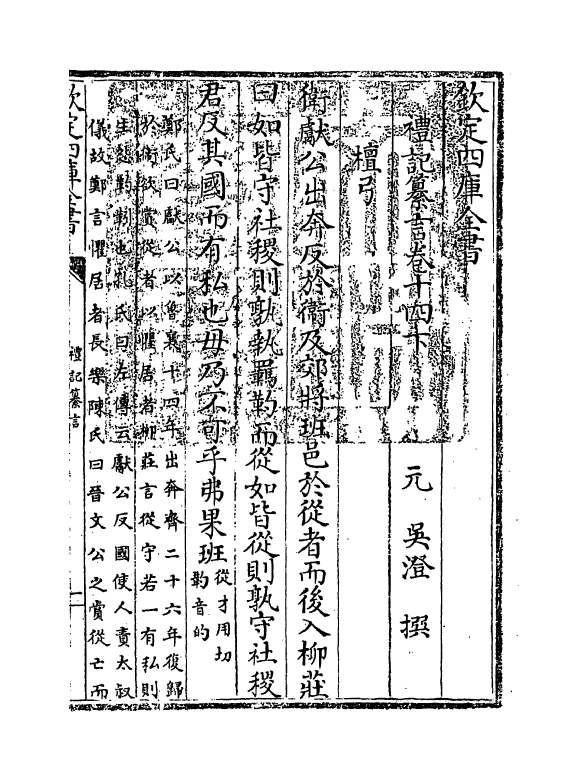 欽定四庫全書
禮記纂言卷十四下
元 吳澄 撰
檀弓
衛獻公出奔反於衛及郊將班邑於從者而後入柳莊
曰如皆守社稷則孰執羈靮而從如皆從則孰守社稷
君反其國而有私也毋乃不可乎弗果班
從才用切
靮音的
鄭氏曰獻公以魯襄十四年出奔齊二十六年復歸
於衛欲賞從者以懼居者柳莊言從守若一有私則
生怨靮靷也孔氏曰左傳云獻公反國使人責太叔
儀故鄭言懼居者長樂陳氏曰晉文公之賞從亡而
欽定四庫全書
禮記纂言